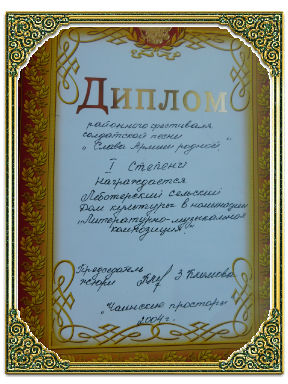 Диплом
районного фестиваля
солдатской песни
"Слава Армии родной"
I Степени
Награждается
Леботерский сельский
Дом культуры в номинации
"Литературно-музыкальная
композиция".
Председатель
жюри З Климова
"Чаинские просторы"
2004 г.